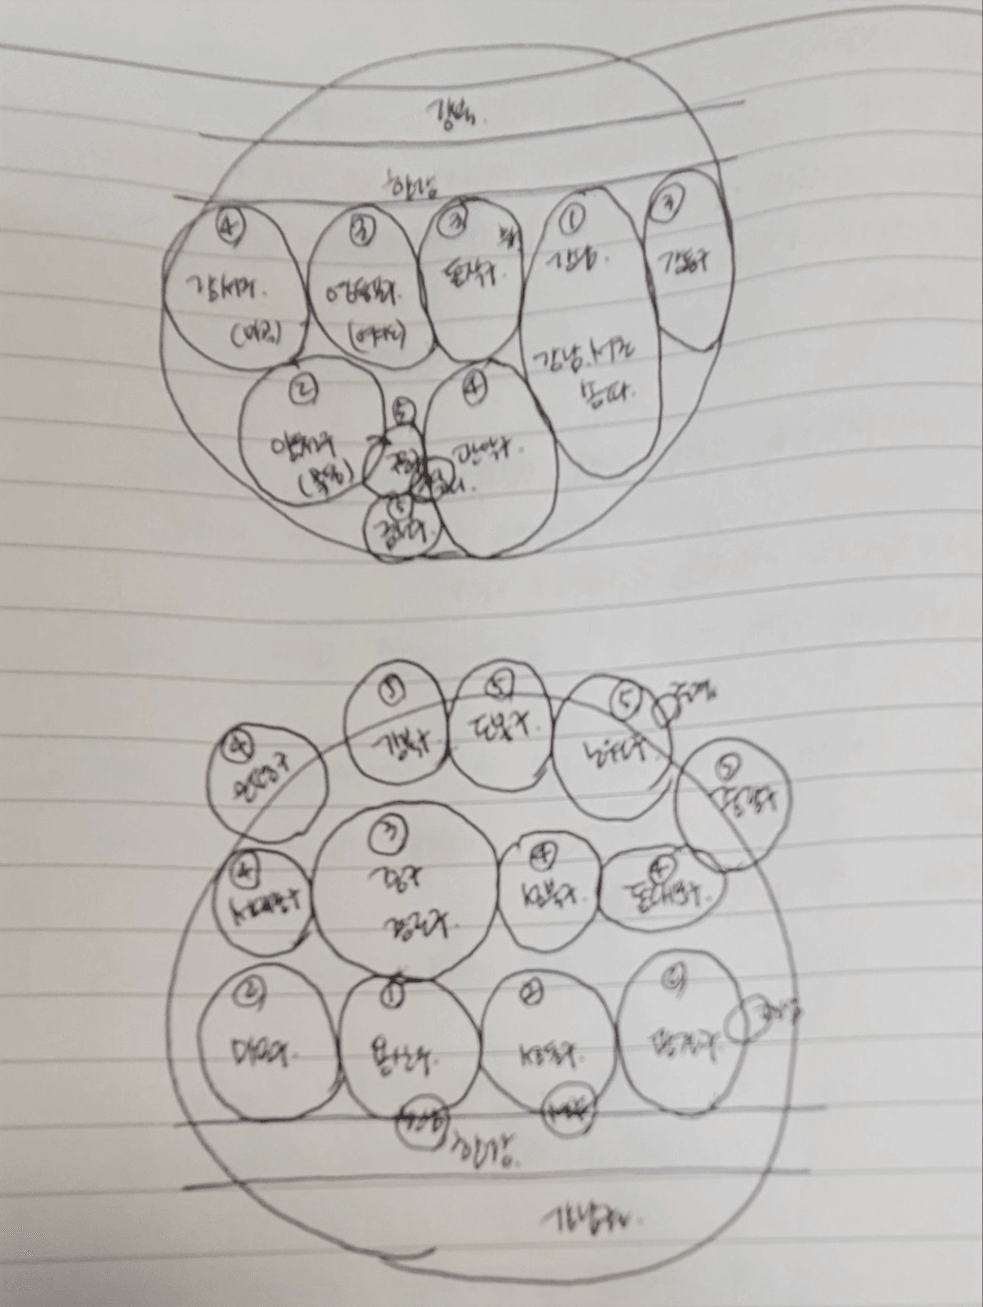 강북.
한강
④
강서구.
(마곡)
③
영등포구.
(여의도)
③
동작구.
①
강남.
강남.서초
송파.
③
강동구
②
양천구
(목동)
⑤
구로
④
관악구.
⑤
금천구.
⑤
강북구
⑤
도봉구.
⑤
노원구
④
은평구
⑤
중랑구
④
서대문구
③
중구
종로구.
④
성북구.
④
동대문구.
②
마포구.
①
용산구.
②
성동구.
②
광진구.
한강.
강남권.